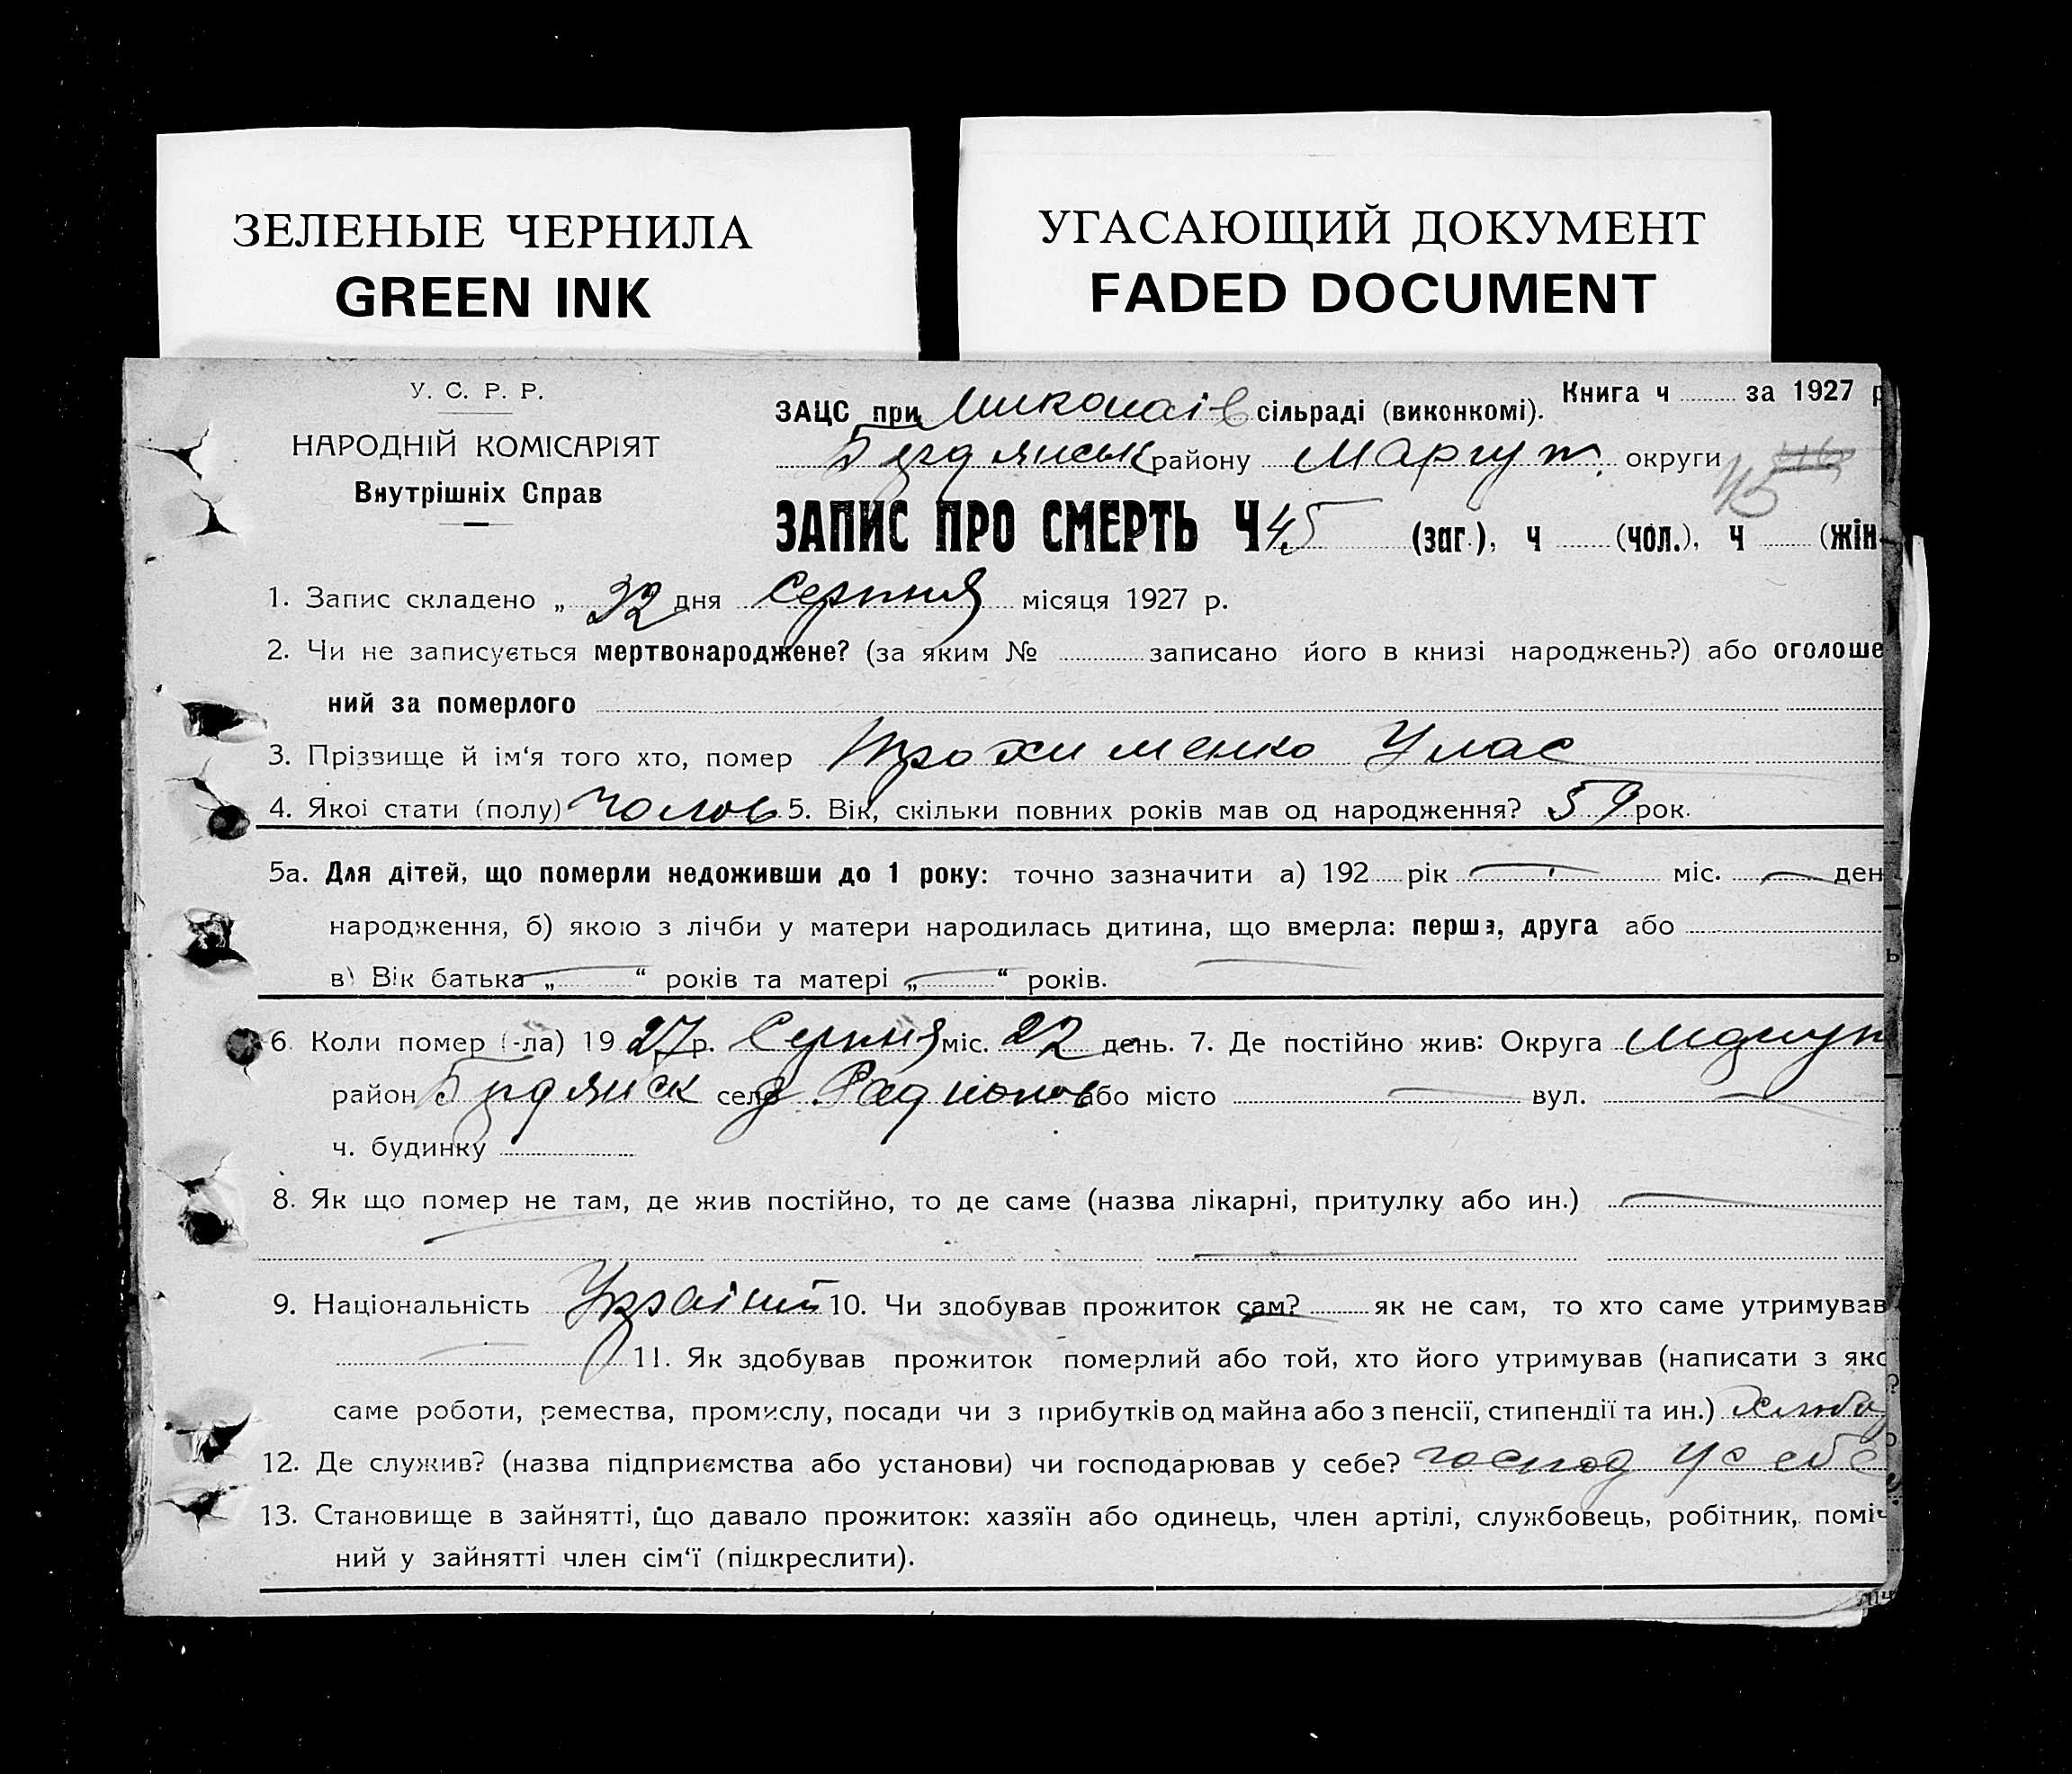 ЗЕЛЕНЫЕ ЧЕРНИЛА
GREEN INK
УГАСАЮЩИЙ ДОКУМЕНТ
FADED DOCUMENT
У. С. Р. Р.
НАРОДНІЙ КОМІСАРІЯТ
Внутрішніх Справ
Книга ч за 1927 р
ЗАЦС при Миколаїв сільраді (виконкомі).
Бердянськ району Маріуп. округи
45
ЗАПИС ПРО СМЕРТЬ Ч 45 (заг.), ч (чол.), ч (жін
1. Запис складено „ 22 дня Серпня місяця 1927 р.
2. Чи не записується мертвонароджене? (за яким № записано його в книзі народжень?) або оголоше
ний за померлого
3. Прізвище й ім‘я того хто, помер Трохименко Улас
4. Якої стати (полу) Чолов 5. Вік, скільки повних років мав од народження? 59 рок.
5а. Для дітей, що померли недоживши до 1 року: точно зазначити а) 192 рік міс. ден
народження, б) якою з лічби у матери народилась дитина, що вмерла: перша, друга або
в) Вік батька „ “ років та матері „ “ років.
6. Коли помер (-ла) 1927 р. Серпня міс. 22 день. 7. Де постійно жив: Округа Маріуп
район Бердянськ село Радионов або місто вул.
ч. будинку
8. Як що помер не там, де жив постійно, то де саме (назва лікарні, притулку або ин.)
9. Національність Україн 10. Чи здобував прожиток сам? як не сам, то хто саме утримував
11. Як здобував прожиток померлий або той, хто його утримував (написати з яко
саме роботи, ремества, промислу, посади чи з прибутків од майна або з пенсії, стипендії та ин.) Хлибо
12. Де служив? (назва підприємства або установи) чи господарював у себе? господ у себе
13. Становище в зайнятті, що давало прожиток: хазяїн або одинець, член артілі, службовець, робітник, поміч
ний у зайнятті член сім‘ї (підкреслити).